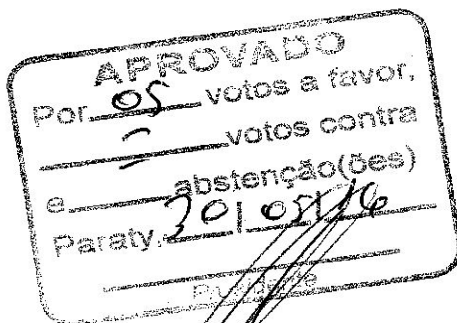 APROVADO
Por 05 votos a favor,
votos contra
e abstenção(ões)
Paraty, 20/05/16
Presidente